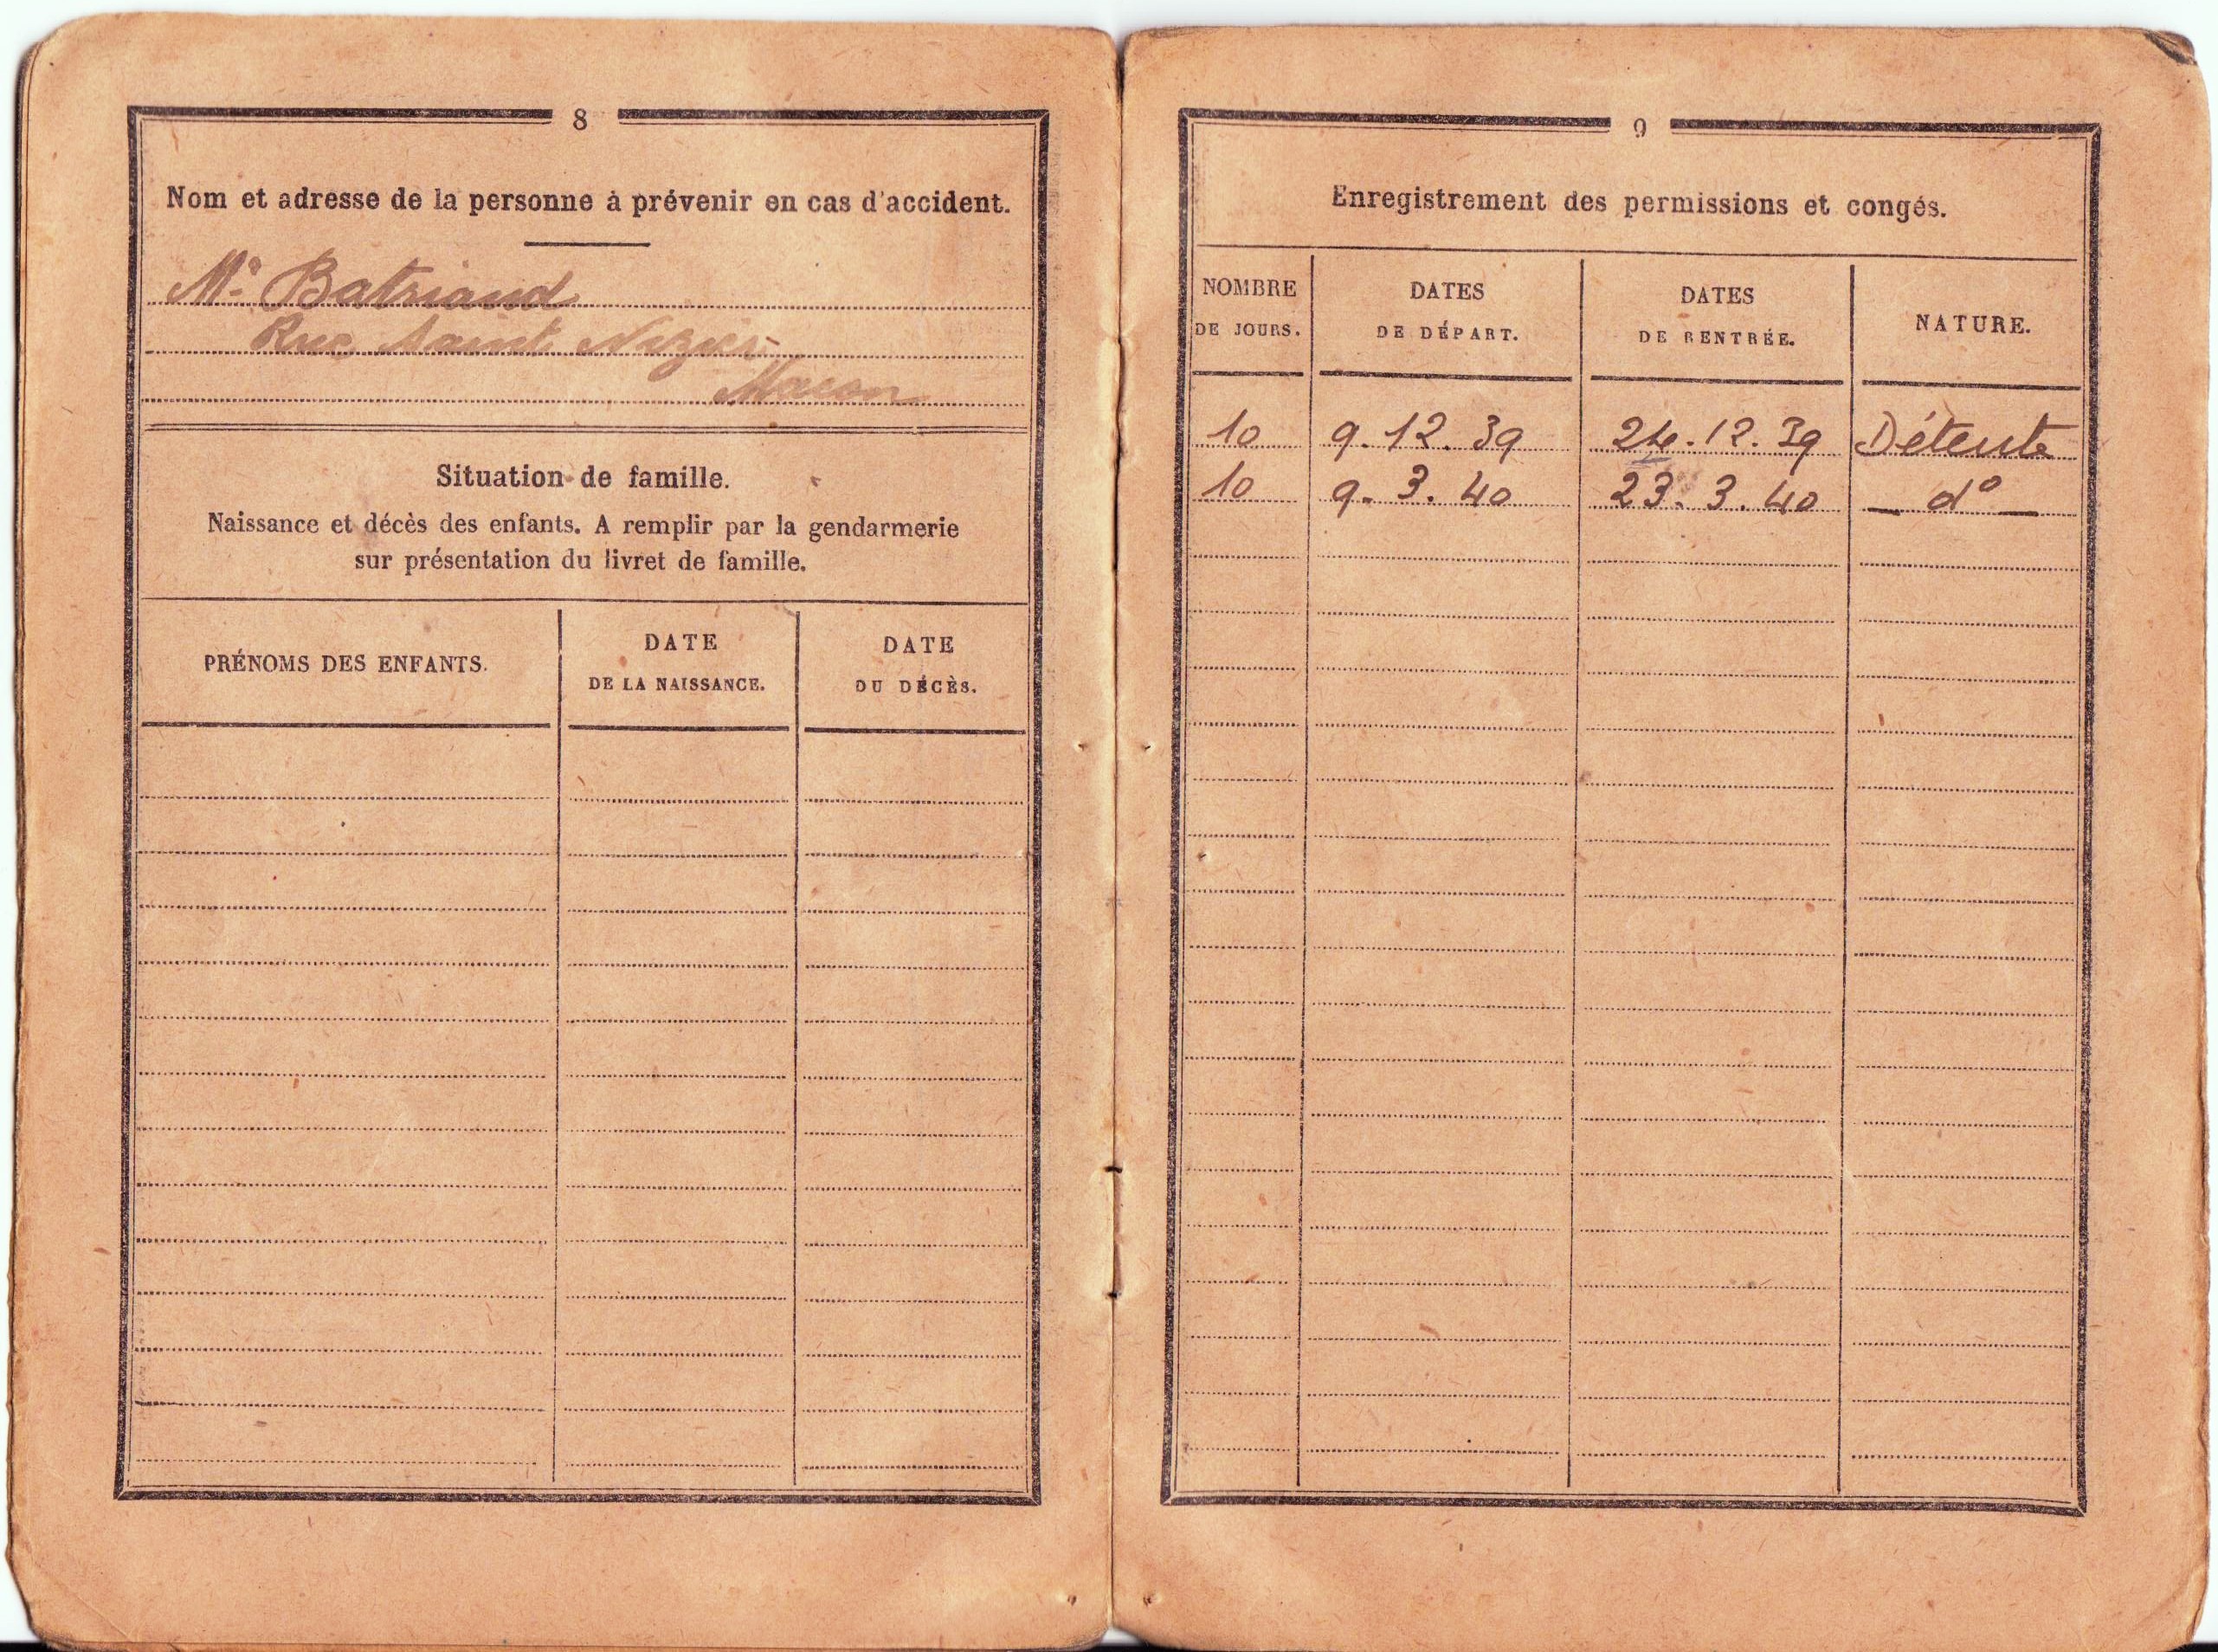 8
Nom et adresse de la personne à prévenir en cas d'accident.
Mr Batriaud
Rue Saint Nizier
Macon
Situation de famille.
Naissance et décès des enfants. A remplir par la gendarmerie
sur présentation du livret de famille.
PRÉNOMS DES ENFANTS.
DATE
DE LA NAISSANCE.
DATE
DU DÉCÈS.
9
Enregistrement des permissions et congés.
NOMBRE
DE JOURS.
DATES
DE DÉPART.
DATES
DE RENTRÉE.
NATURE.
10 9.12.39 24.12.39 Détente
10 9.3.40 23.3.40 — d° —